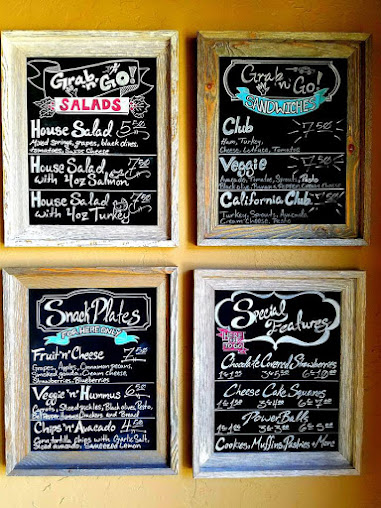 Grab 'n' Go!
SALADS
House Salad 5.50
Mixed Springs, grapes, black olives,
tomatoes, Swiss Cheese
House Salad 7.50
with 4oz Salmon
House Salad 7.50
with 4oz Turkey
Grab 'n' Go!
SANDWICHES
Club 7.50
Ham, Turkey,
Cheese, Lettuce, Tomatoes
Veggie 7.50
Avocado, Tomatoes, Sprouts, Pesto
Black olive, Banana Pepper, Cream Cheese
California Club 7.50
Turkey, Sprouts, Avocado
Cream Cheese, Pesto
Snack Plates
FOR HERE ONLY
Fruit 'n' Cheese 7.50
Grapes, Apples, Cinnamon pecans,
Smoked gouda, Cream cheese
Strawberries, Blueberries
Veggie 'n' Hummus 6.50
Carrots, Sliced pickles, Black olives, Pesto,
Crackers and Bread
Chips 'n' Avocado 4.50
Corn tortilla chips with Garlic Salt,
Sliced avocado, Squeezed Lemon
Special
Features
HERE
TO GO
Chocolate Covered Strawberries
Cheese Cake Squares
Power Balls
Cookies, Muffins, Pastries & More